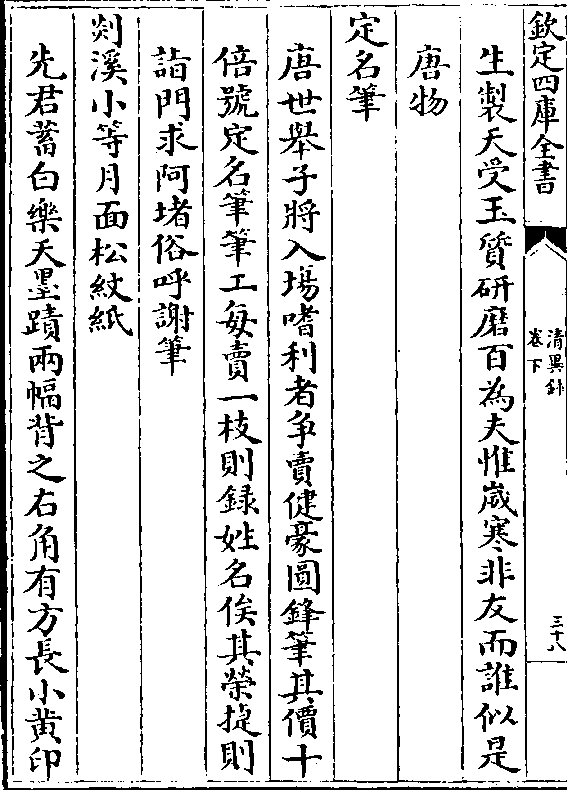 欽定四庫全書
清異錄
卷下
三十八
生製天受玉質研磨百為夫惟歲寒非友而誰似是
唐物
定名筆
唐世舉子將入場嗜利者爭賣健豪圓鋒筆其價十
倍號定名筆筆工每賣一枝則錄姓名俟其榮捷則
詣門求阿堵俗呼謝筆
剡溪小等月面松紋紙
先君蓄白樂天墨蹟兩幅背之右角有方長小黃印